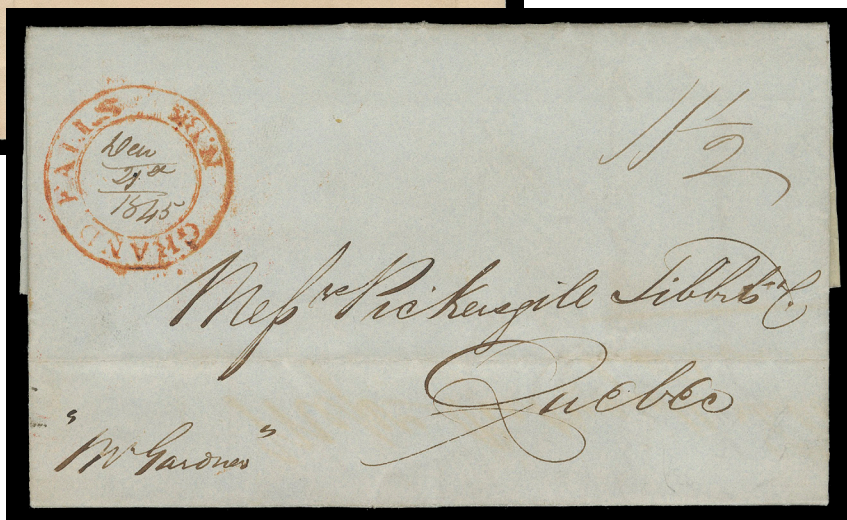 GRAND FALLS N.B.
Dec
21st
1845
11 1/2
Messrs Pickersgill Tibbits & C.
Quebec
"Mr Gardner"